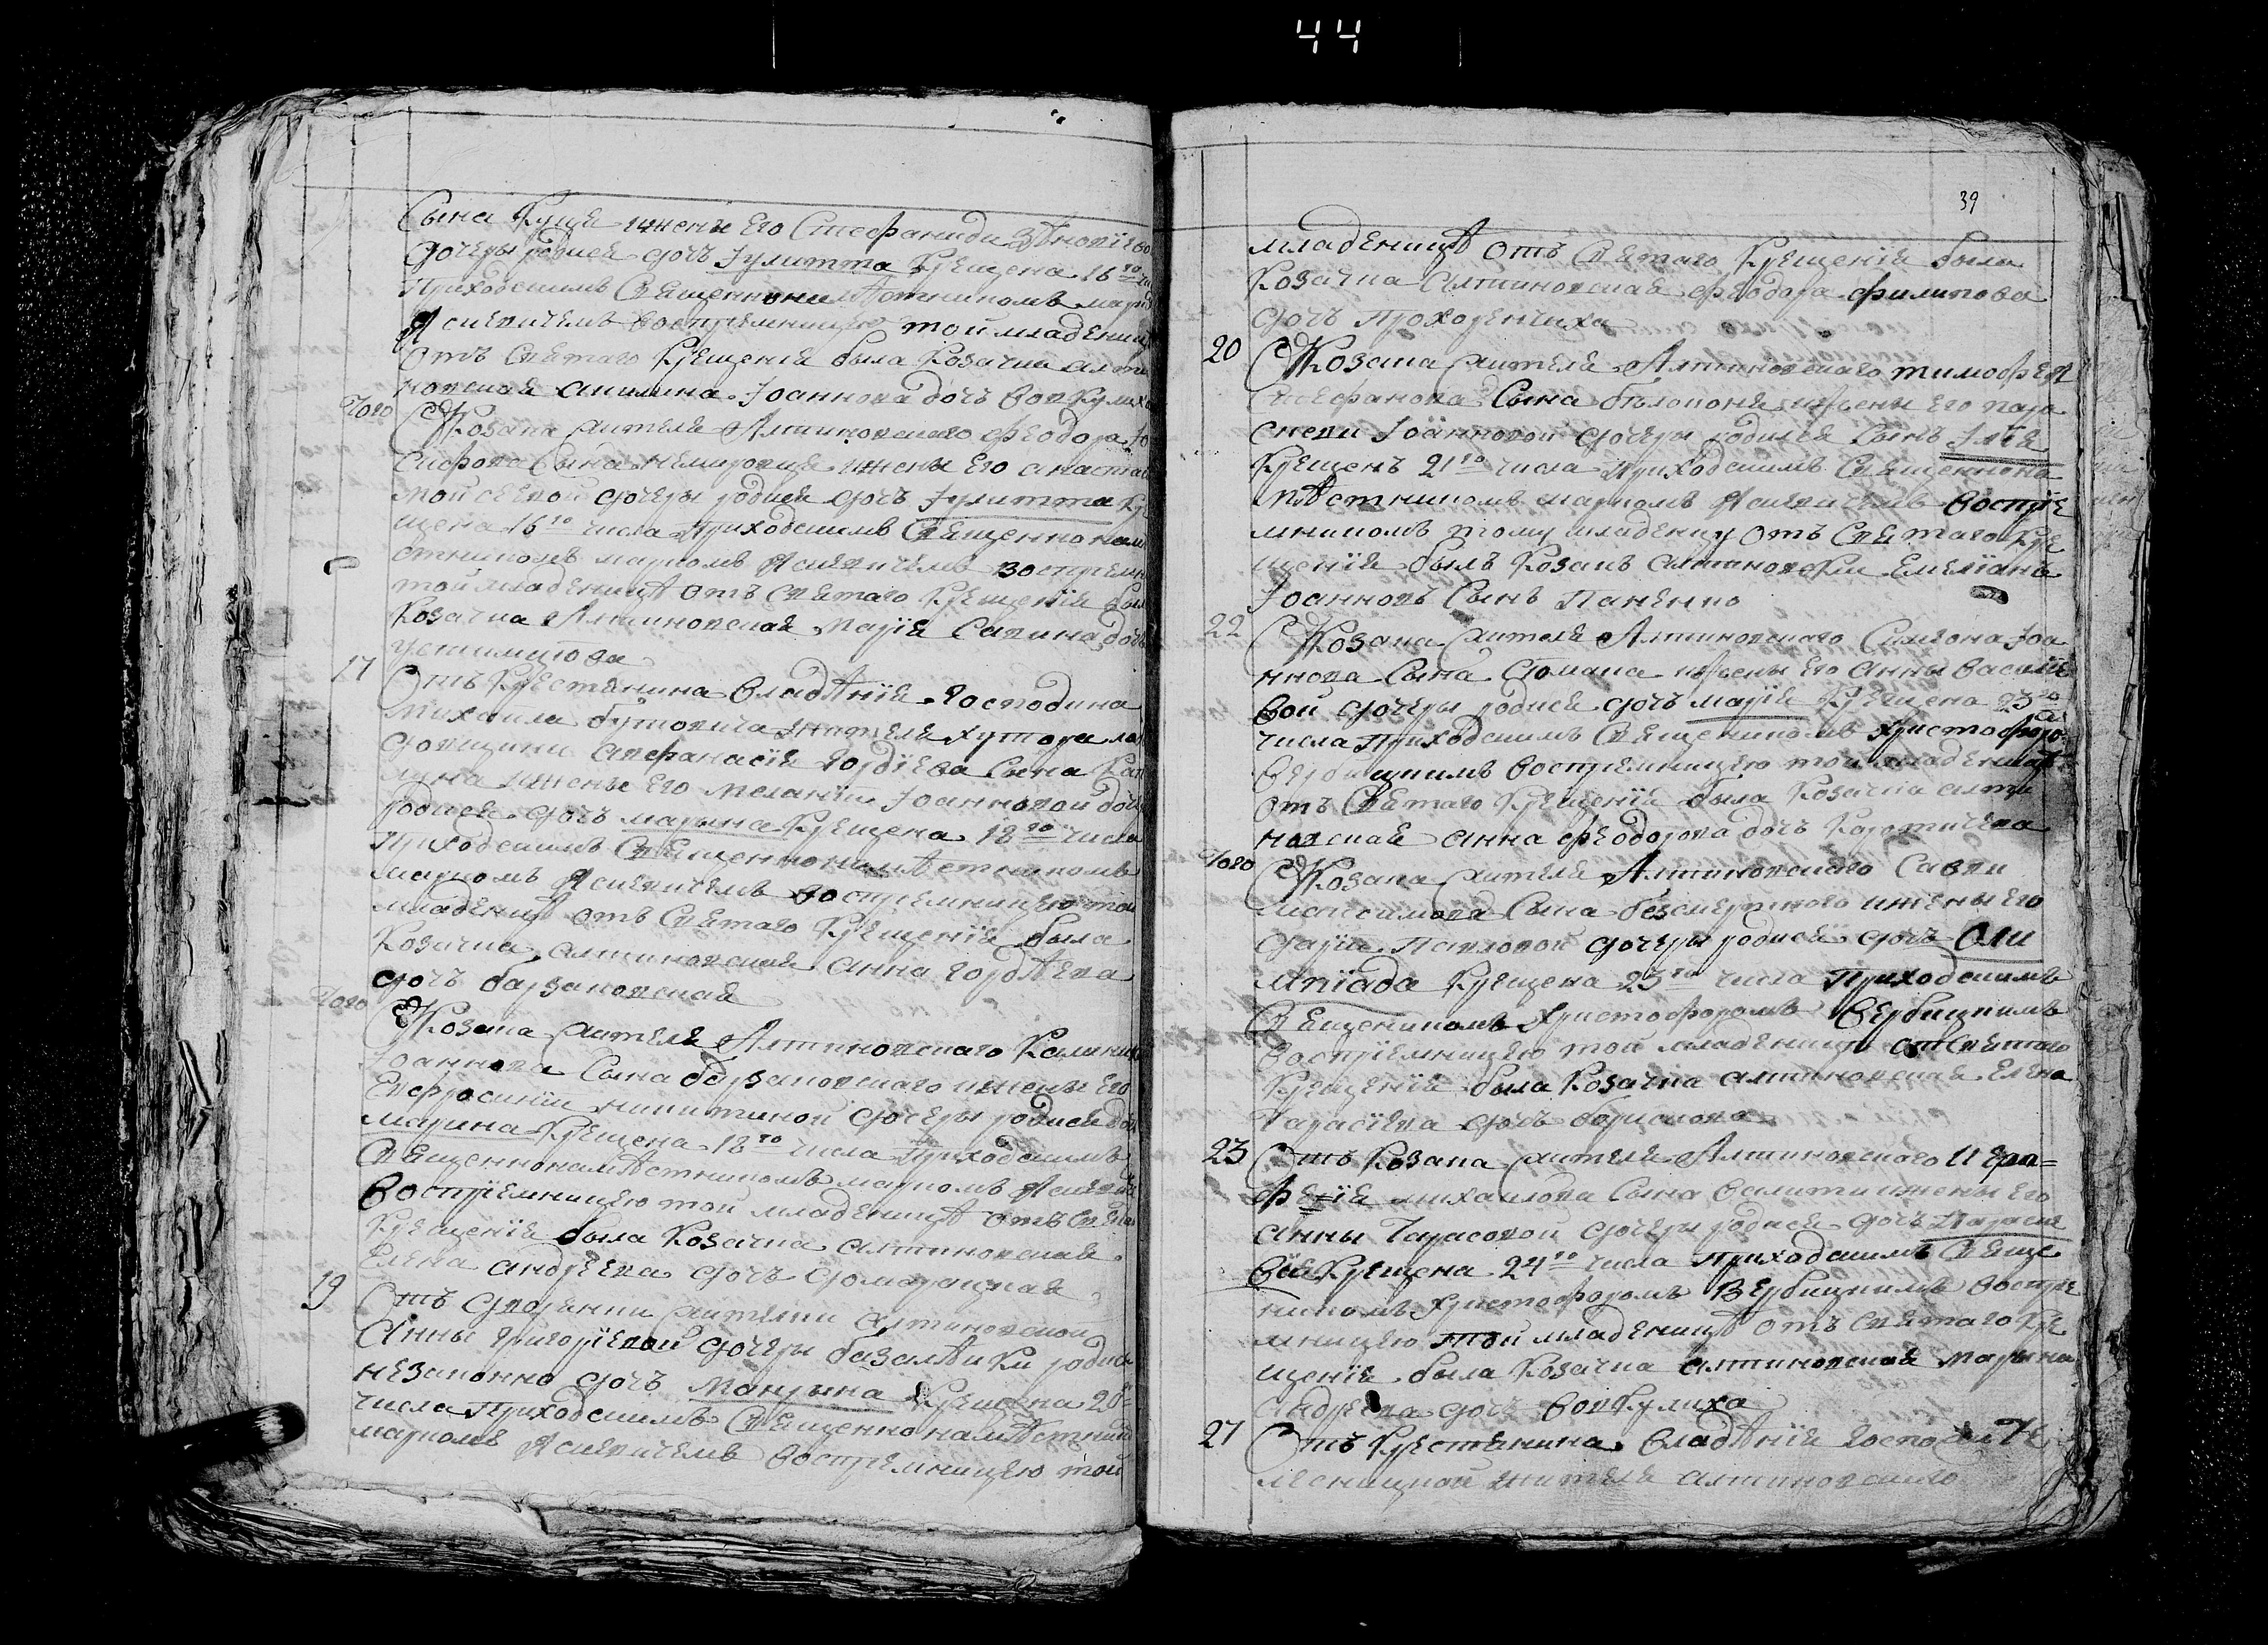 44
Сына Куця ижены Его Стефаниди Зѣновіево
дочеры родися дочъ Іулитта Крещена 16го чи
Приходскимъ Священнонамѣстникомъ марко
Ясневичемъ воспріемницею той младениц
Отъ Святаго Крещенія была Козачка алти
новская акилина Іоаннова дочъ вовкулиха
Того
Ꙍ Козака жителя Алтиновского Феодора Іо
сифова Сына Немировця ижены Его анастас
мойсеевой дочеры родися дочъ Іулитта Кр
щена 16го числа Приходскимъ Священнонам
стникомъ маркомъ Ясневичемъ воспріемн
той младеницѣ Отъ Святаго Крещенія бы
Козачка Алтиновская марія Савина доч
17
Отъ Крестянина владѣнія Господина
михаила бутовича жителя хутора
афанасія Гордіева Сына
ижены Его меланіи Іоанновой доч
родися дочъ марына Крещена 18го числа
Приходскимъ Священнонамѣстникомъ
маркомъ Ясневичемъ воспріемницею той
младеницѣ отъ Святаго Крещенія была
Козачка алтиновская анна гордѣева
дочъ барзаковская
Того
Ꙍ Козака жителя Алтиновского Калиника
Іоаннова Сына барзаковского ижены Его
Евфросиніи никитиной дочеры родися доч
марина Крещена 18го числа Приходскимъ
Священнонамѣстникомъ маркомъ Ясневич
Воспріемницею той младеницѣ отъ Свята
Крещенія была Козачка алтиновская
Елена андреева дочъ домарацкая
19
Отъ дворянки жителки алтиновской
Анны Григоріевой дочеры базалѣики родися
незаконно дочъ Макрына Крещена 20го
числа Приходскимъ Священнонамѣстник
маркомъ Ясневичемъ воспріемницею той
39
младеницѣ Отъ Святаго Крещенія была
Козачка Алтиновская феодора филипова
дочъ Прохоренчиха
20
Ꙍ Козака жителя Алтиновского тимофея
Стефанова Сына бѣлоконя ижены Его пара
скеви Іоанновой дочеры родился Сынъ Ілія
Крещенъ 21го числа Приходскимъ Священнона
мѣстникомъ маркомъ Ясневичемъ воспріе
мникомъ тому младенцу Отъ Святаго Кре
щенія былъ Козакъ алтиновски Емеліана
Іоанновъ Сынъ Паненко
22
Ꙍ Козака жителя Алтиновского Симеона Іоа
ннова Сына ижены Его анны василіе
вой дочеры родися дочъ марія Крещена 23го
числа Приходскимъ Священикомъ Христофоро
Вербицкимъ воспріемницею той младеницѣ
отъ Святаго Крещенія была Козачка алти
новская анна феодорова дочъ Коротичева
Того
Ꙍ Козака жителя Алтиновского Савви
максимова Сына безсмертного ижены Его
дарїи Павловой дочеры родися дочъ Оли
мпіада Крещена 23го числа Приходскимъ
Священикомъ Христофоромъ Вербицкимъ
воспріемницею той младеници отъ Святаго
Крещенія была Козачка алтиновская Елена
тарасіева дочъ борисова
23
Отъ Козака жителя Алтиновского Иеро=
фе=я михаилова Сына ижены Его
анны тарасовой дочеры родися дочъ Параске
вія Крещена 24го числа Приходскимъ Свяще
никомъ Христофоромъ Вербицкимъ воспріе
мницею той младеницѣ отъ Святаго Кре
щенія была Козачка алтиновская марына
андреева дочъ вовкулиха
27
Отъ Крестянина владѣнія Госпо
жителя алтиновского